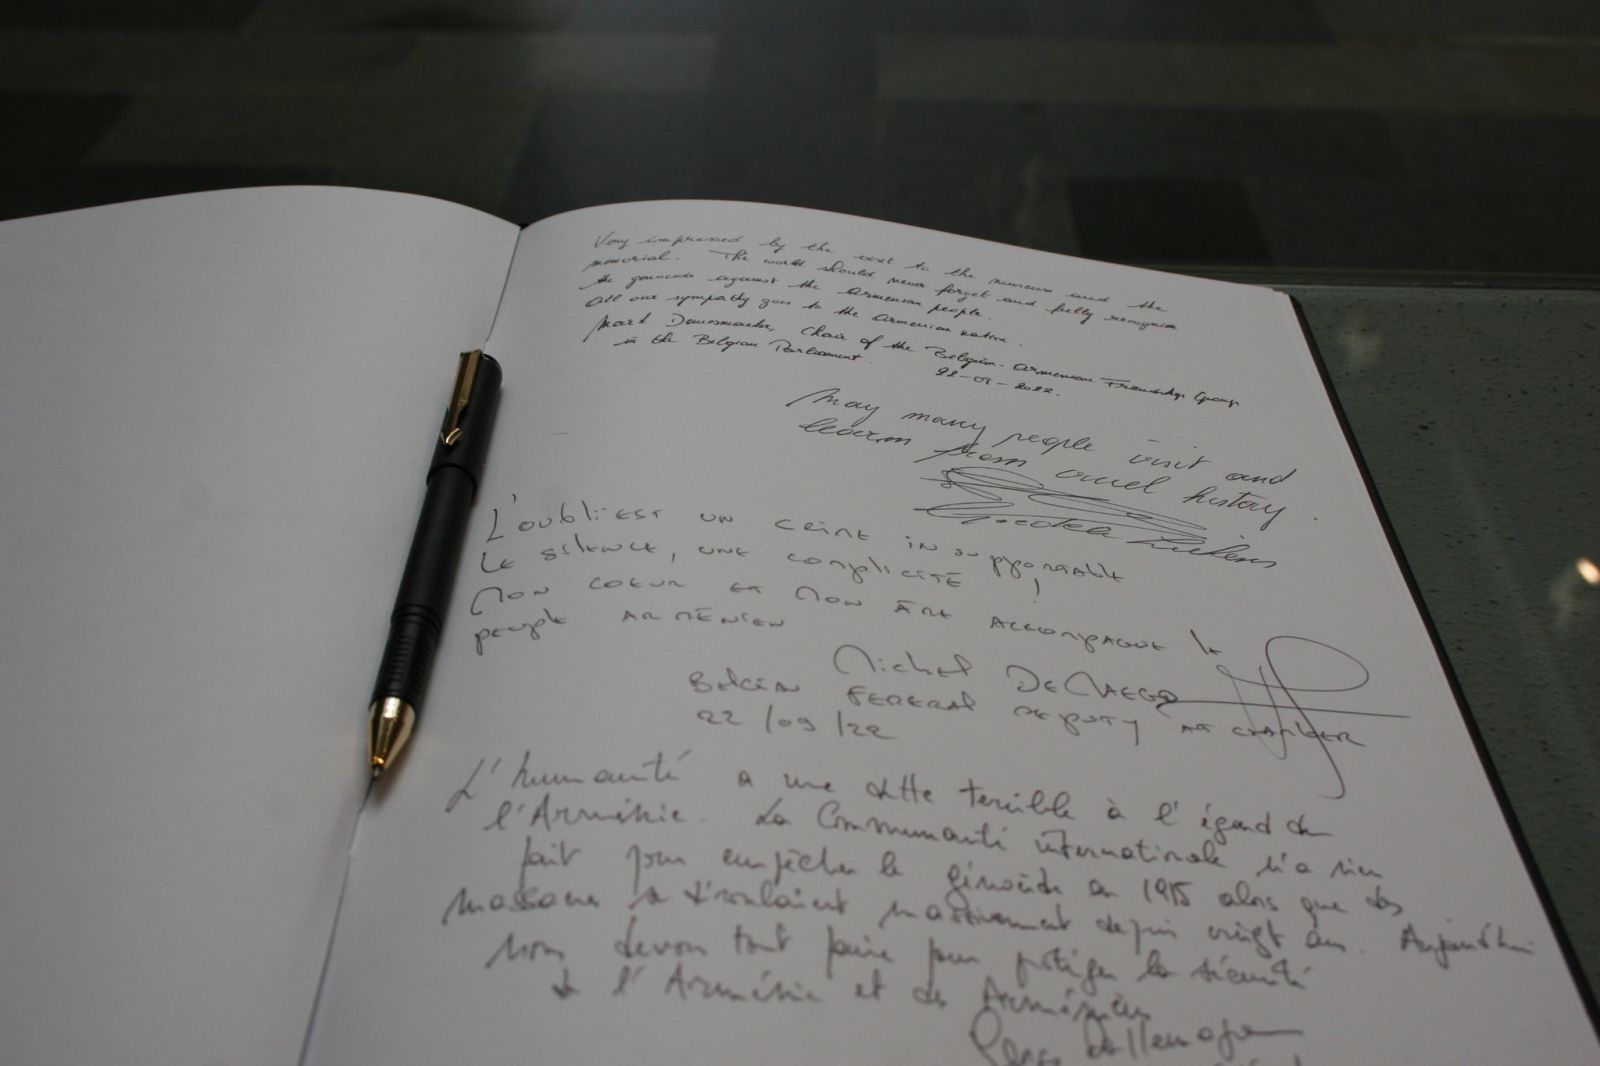 Very impressed by the visit to the museum and the
memorial. The world should never forget and fully recognize
the genocide against the Armenian people.
All our sympathy goes to the Armenian nation.
Mark Demesmaeker, Chair of the Belgian-Armenian Friendship Group
in the Belgian Parliament.
22-09-2022.
May many people visit and
learn from cruel history.
L'oubli est un crime insupportable
Le silence, une complicité,
Mon coeur et mon âme accompagne le
peuple arménien
Michel De Maegd
Belgian Federal Deputy at Chamber
22/09/22
L'humanité a une dette terrible à l'égard de
l'Arménie. La Communauté internationale n'a rien
fait pour empêcher le génocide en 1915 alors que des
massacres se déroulaient massivement depuis vingt ans. Aujourd'hui
nous devons tout faire pour protéger la sécurité
de l'Arménie et des Arméniens
Dallemagne